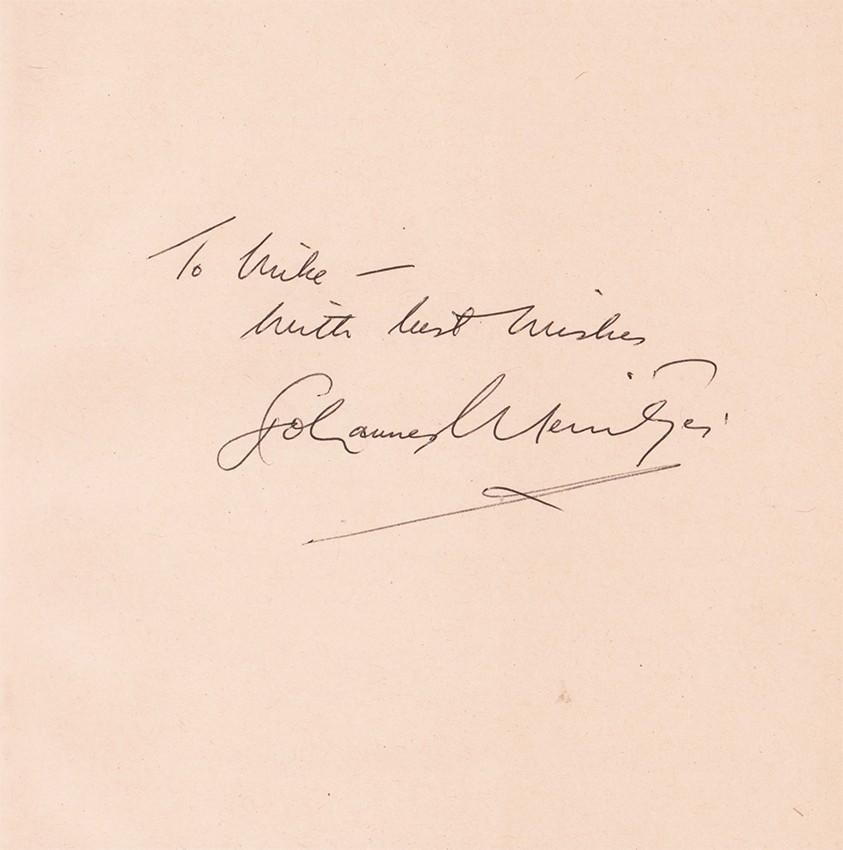 To Mike —
With best wishes
Johannes Meintjes